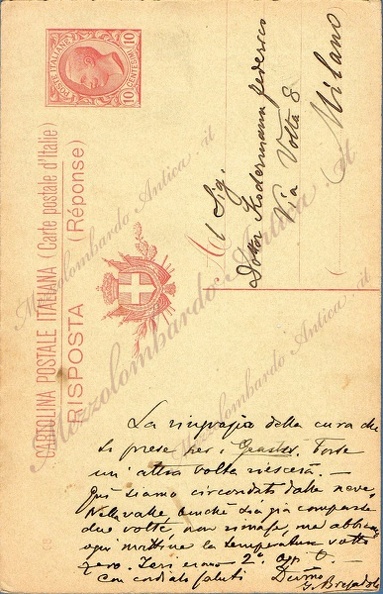 POSTE ITALIANE
10 CENTESIMI 10
CARTOLINA POSTALE ITALIANA (Carte postale d'Italie)
RISPOSTA (Réponse)
Al Sig.
Dottor Kodermann Federico
Via Volta 8
Milano
La ringrazio della cura che
si prese per i Geaster. Forse
un'altra volta riescirà. —
Qui siamo circondati dalla neve.
Nella valle anche sia già comparsa
due volte, non rimase, ma abbiamo
ogni mattina la temperatura sotto
zero. Ieri erano 2°, oggi 0. —
Con cordiali saluti Devmo
G. Bresadola
Mezzolombardo Antica .it
Mezzolombardo Antica .it
Mezzolombardo Antica .it